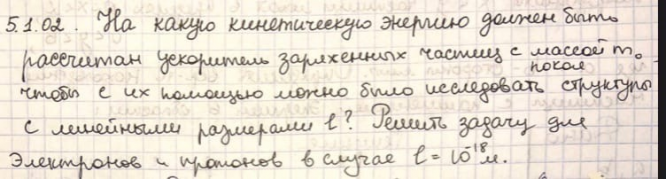 5.1.02. На какую кинетическую энергию должен быть
рассчитан ускоритель заряженных частиц с массой m₀
покоя
чтобы с их помощью можно было исследовать структуры
с линейными размерами l? Решить задачу для
электронов и протонов в случае l = 10⁻¹⁸ м.